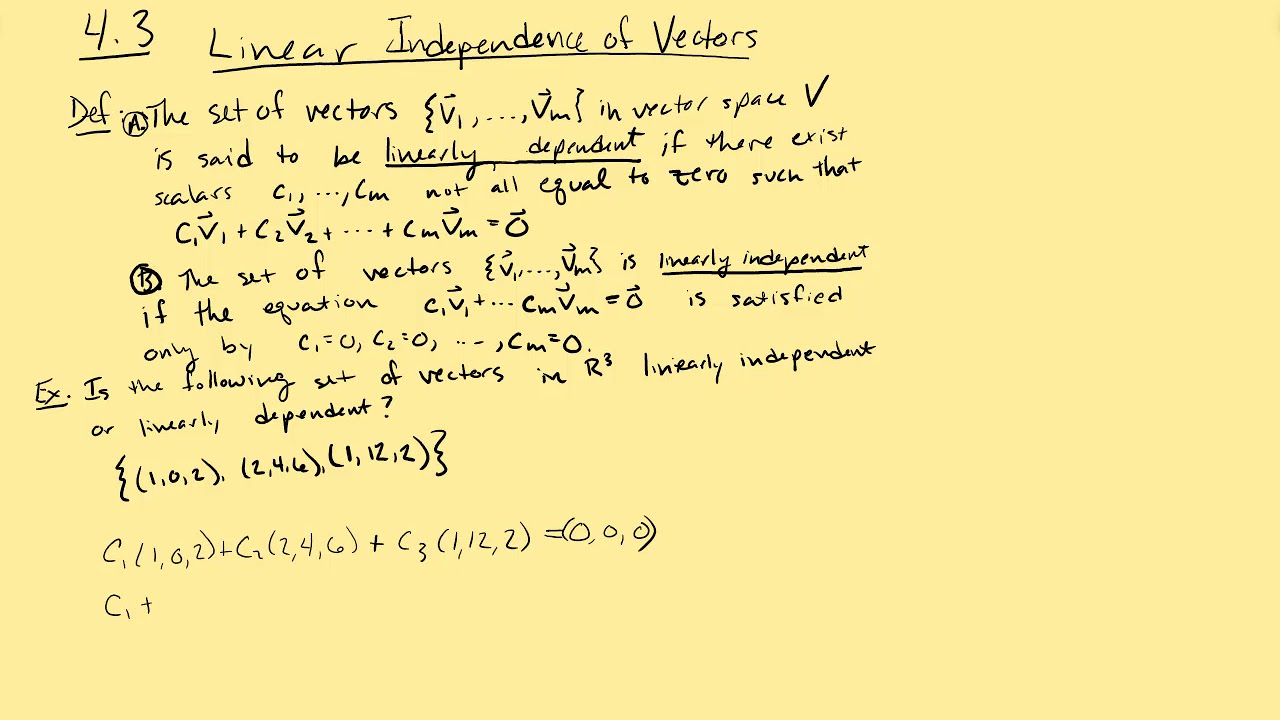 4.3 Linear Independence of Vectors
Def: A. The set of vectors {v⃗₁, ..., v⃗m} in vector space V
is said to be linearly dependent if there exist
scalars c₁, ..., cm not all equal to zero such that
c₁v⃗₁ + c₂v⃗₂ + ... + cmv⃗m = 0⃗
B. The set of vectors {v⃗₁, ..., v⃗m} is linearly independent
if the equation c₁v⃗₁ + ... cmv⃗m = 0⃗ is satisfied
only by c₁=0, c₂=0, ..., cm=0.
Ex. Is the following set of vectors in R³ linearly independent
or linearly dependent?
{(1,0,2), (2,4,6), (1,12,2)}
C₁(1,0,2)+C₂(2,4,6) + C₃(1,12,2) =(0,0,0)
C₁ +